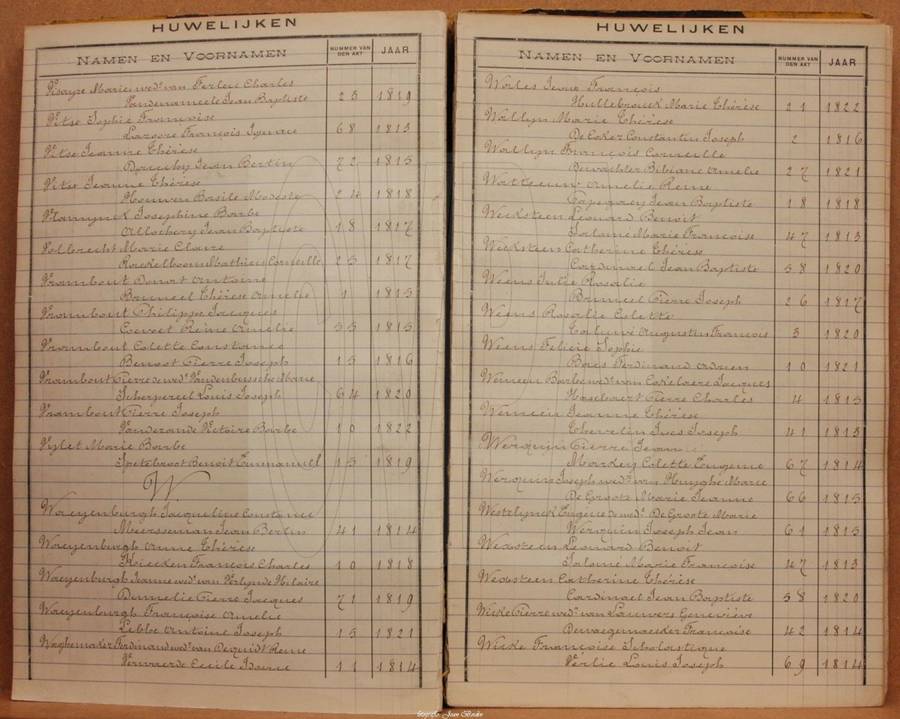 HUWELIJKEN
NAMEN EN VOORNAMEN
NUMMER VAN DEN AKT
JAAR
Visayze Marie wed. van Ferleu Charles
Vandenameele Jean Baptiste 25 1819
Vitse Sophie Françoise
Lazoore François Ignace 68 1813
Vitse Jeanne Thérèse
Jean Bertin 72 1815
Vitse Jeanne Thérèse
Houwen Basile Modeste 24 1818
Vlamynck Josephine Barbe
Allochery Jean Baptiste 18 1817
Volbrecht Marie Claire
Roekelboom Mathieu Corneille 25 1817
Vrambout Donat Antoine
Bruneel Thérèse Amelie 1 1815
Vrambout Philippe Jacques
Coevoet Reine Amelie 55 1815
Vrambout Colette Constance
Benoot Pierre Joseph 15 1816
Vrambout Pierre de wed. Vandenbussche Marie
Scherpereel Louis Joseph 64 1820
Vrambout Pierre Joseph
Vanderande Victoire Barbe 10 1822
Vylet Marie Barbe
Spetebroot Benoit Emmanuel 15 1819
W
Waeyenburgh Jacqueline Constance
Meersseman Jean Bertin 41 1814
Waeyenburgh Anne Thérèse
Kiecken François Charles 10 1818
Waeyenburgh Jeanne wed. van Verlynde Hilaire
Pierre Jacques 71 1819
Waeyenburgh Françoise Amelie
Lebbe Antoine Joseph 15 1821
Waghemaker Ferdinand wed. van Dequidt Reine
Vervaerde Cecile Isaure 11 1814
HUWELIJKEN
NAMEN EN VOORNAMEN
NUMMER VAN DEN AKT
JAAR
Wailes Jean François
Hullebrouck Marie Thérèse 21 1822
Wallyn Marie Thérèse
De Coker Constantin Joseph 2 1816
Wallyn François Corneille
Dewachter Bibiane Amelie 27 1821
Watteeuw Amelie Reine
Jean Baptiste 18 1818
Wecksteen Léonard Benoit
Salomé Marie Françoise 47 1813
Wecksteen Catherine Thérèse
Cardinael Jean Baptiste 58 1820
Weens Julie Rosalie
Bruneel Pierre Joseph 26 1817
Weens Rosalie Colette
Caluwé Augustin François 3 1820
Weens Felicie Sophie
Boies Ferdinand Adrien 10 1821
Wemeen Barbe wed. van Cokelaere Jacques
Haselvaert Pierre Charles 4 1815
Wemeein Jeanne Thérèse
Chevelin Ives Joseph 41 1813
Werquin Pierre Jean
Markey Colette Eugenie 67 1814
Werquin Joseph wed. van Huyghe Marie
De Groote Marie Jeanne 66 1815
Westelynck Eugene de wed. De Groote Marie
Werquin Joseph Jean 61 1815
Wexsteen Leonard Benoit
Salomé Marie Françoise 47 1813
Wexsteen Catherine Thérèse
Cardinael Jean Baptiste 58 1820
Wicke Pierre wed. van Lauwers Geneviève
Dewaegemaeker Françoise 42 1814
Wicke Françoise Scholastique
Verlie Louis Joseph 69 1814